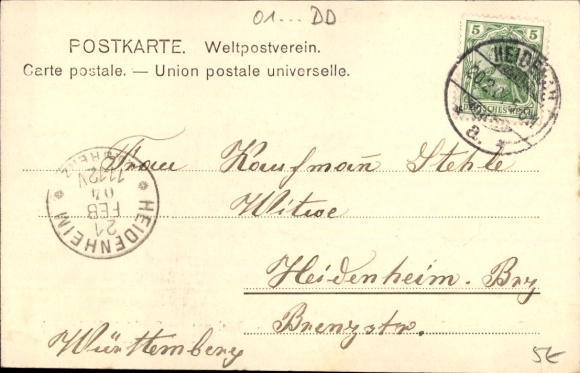 01... DD
POSTKARTE. Weltpostverein.
Carte postale. — Union postale universelle.
5 5
DEUTSCHES REICH
a.
Frau Kaufmann Stehle
Witwe
Heidenheim. Brz
Brenzstr.
Württemberg
HEIDENHEIM
21
FEB
04
11-12V
5€